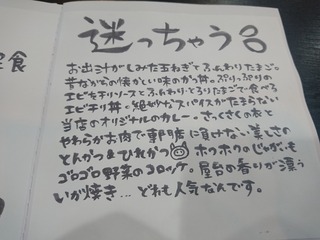 迷っちゃう
お出汁がしみた玉ねぎとふんわりたまご。
昔ながらの懐かしい味のかつ丼。ぷりっぷりの
エビをチリソースとふんわりとろりたまごで食べる
エビチリ丼。絶妙なスパイスがたまらない
当店のオリジナルのカレー。さっくさくの衣と
やわらかお肉で専門店に負けない美しさの
とんかつ&ひれかつ ホクホクのじゃがいも
ゴロゴロ野菜のコロッケ。屋台の香りが漂う
いか焼き… どれも人気なんです。
食